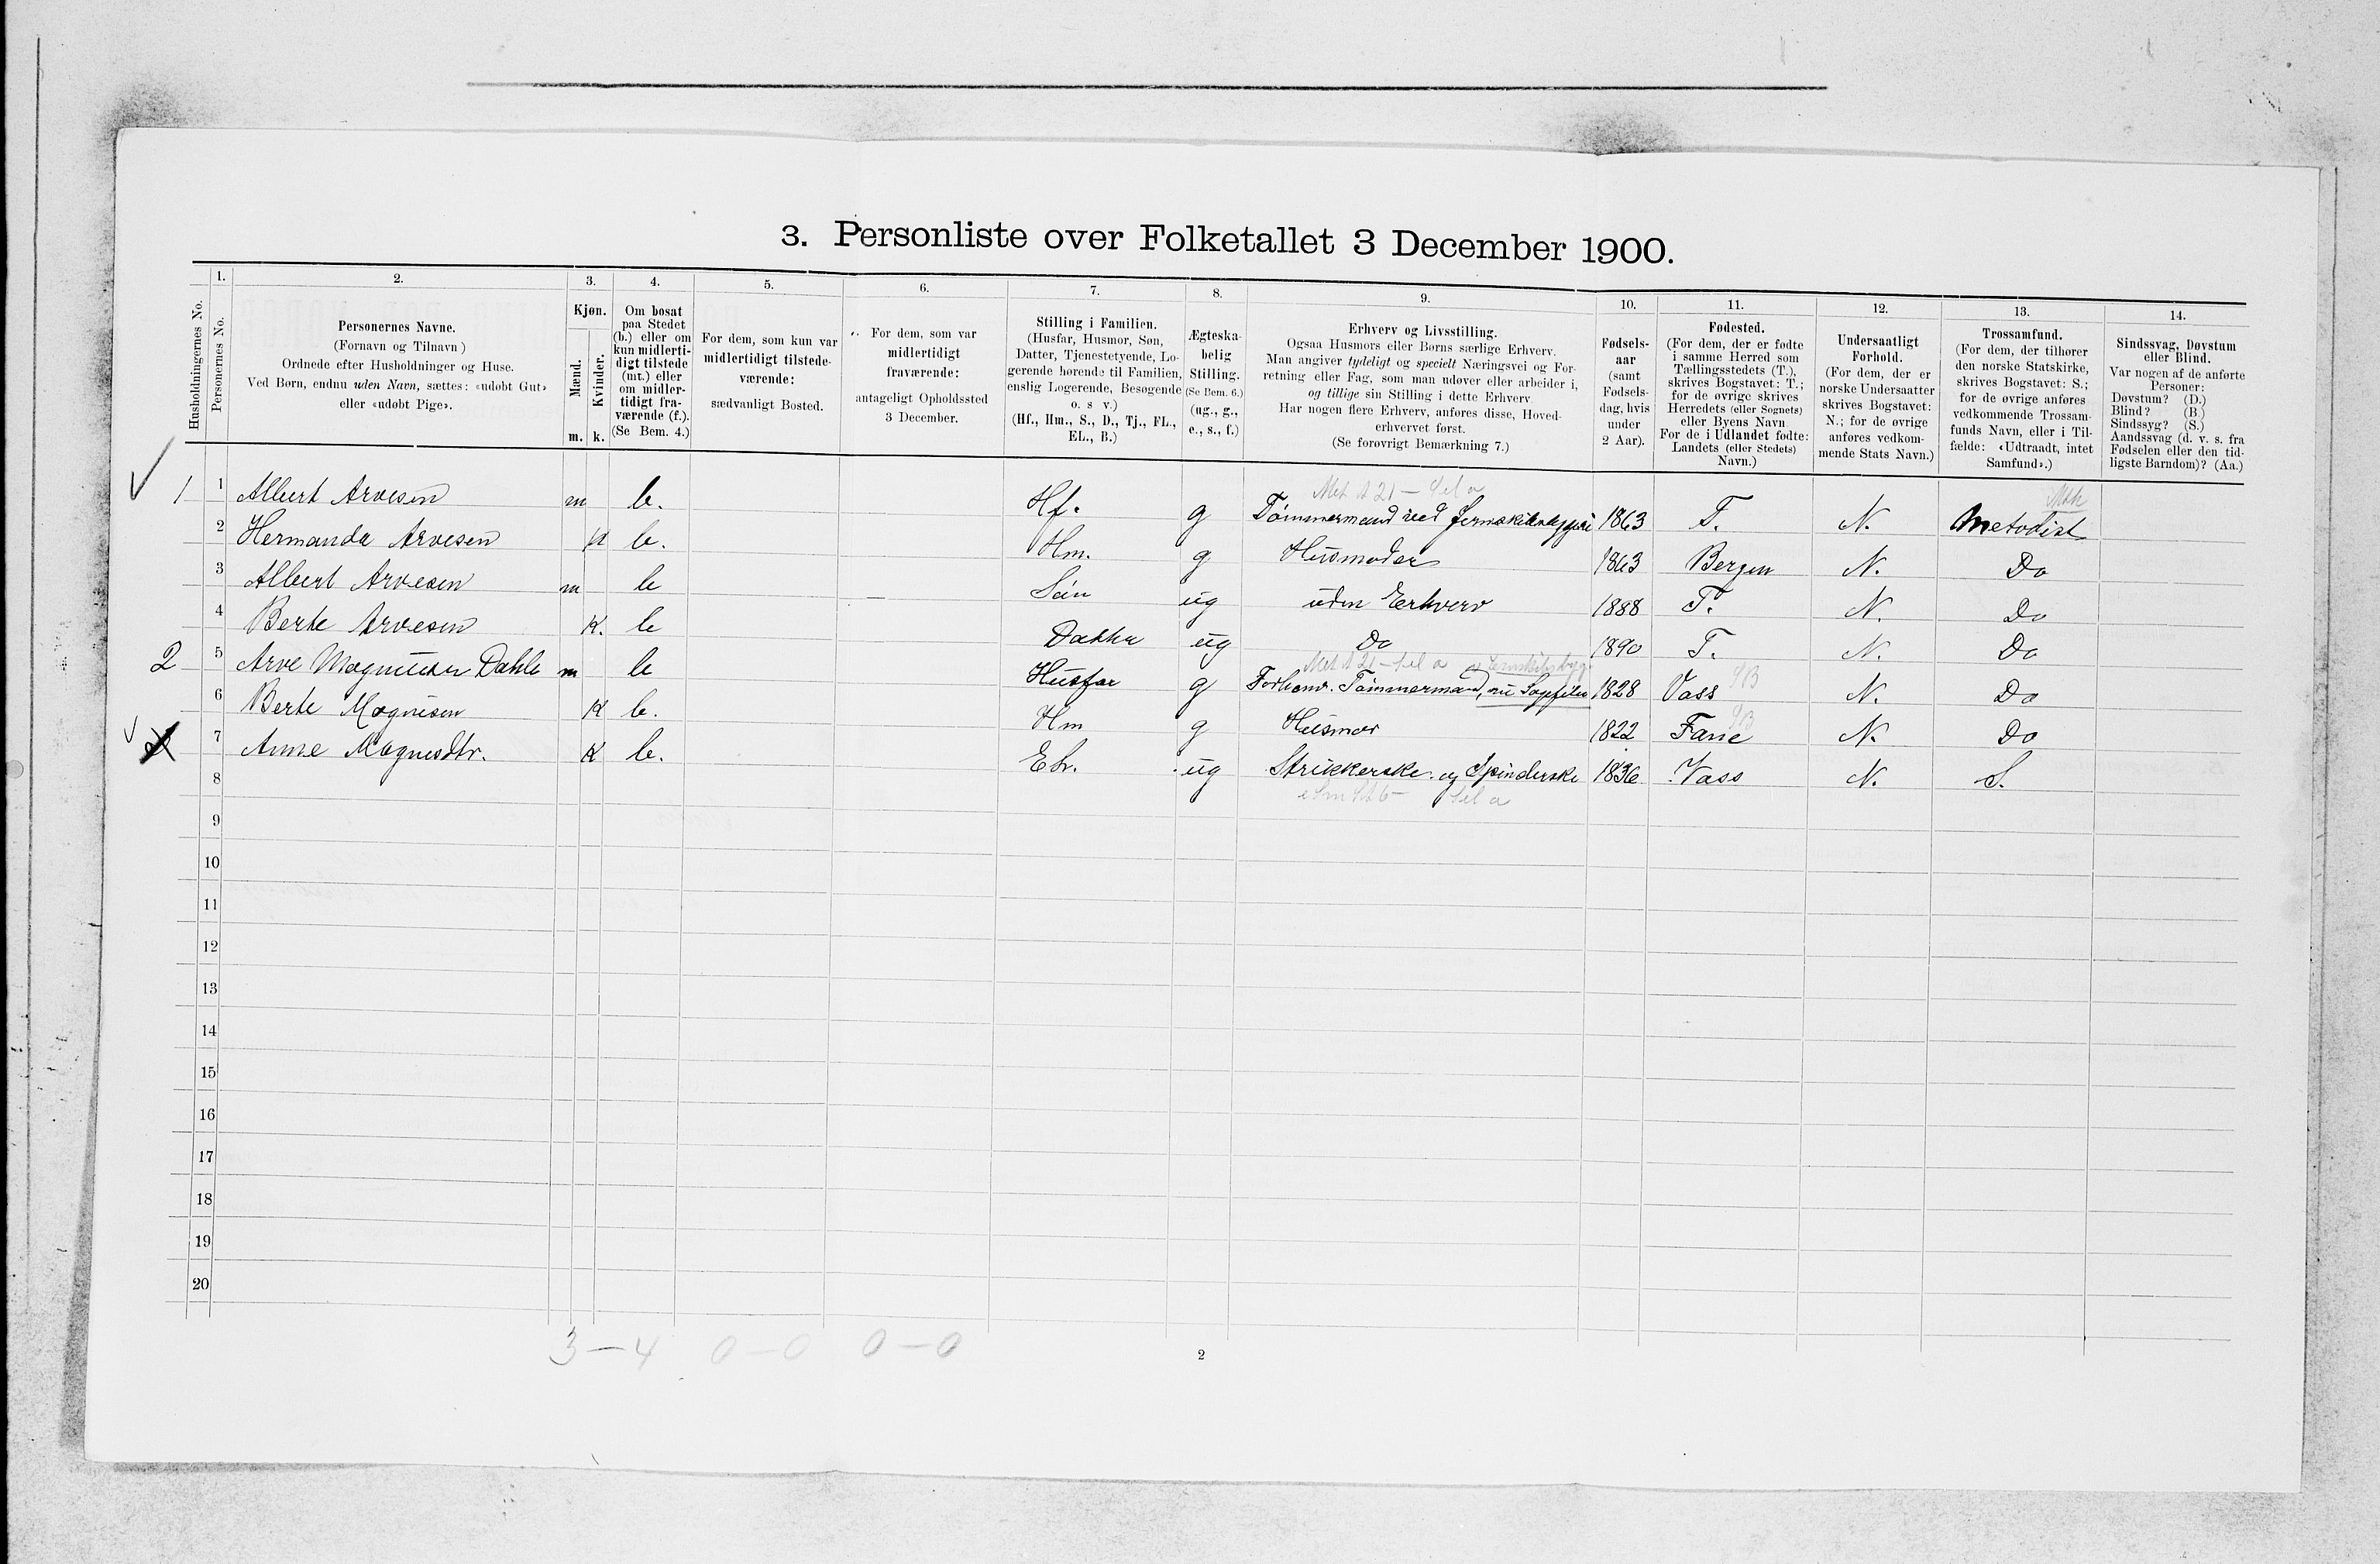 3. Personliste over Folketallet 3 December 1900.
1. 2. 3. 4. 5. 6. 7. 8. 9. 10. 11. 12. 13. 14.
Husholdningernes No.
Personernes No.
Personernes Navne.
(Fornavn og Tilnavn)
Ordnede efter Husholdninger og Huse.
Ved Børn, endnu uden Navn, sættes: «udøbt Gut»
eller «udøbt Pige».
Kjøn.
Mænd.
Kvinder.
m. k.
Om bosat
paa Stedet
(b.) eller om
kun midlerti-
digt tilstede
(mt.) eller
om midler-
tidigt fra-
værende (f.).
(Se Bem. 4.)
For dem, som kun var
midlertidigt tilstede-
værende:
sædvanligt Bosted.
For dem, som var
midlertidigt
fraværende:
antageligt Opholdssted
3 December.
Stilling i Familien.
(Husfar, Husmor, Søn,
Datter, Tjenestetyende, Lo-
gerende hørende til Familien,
enslig Logerende, Besøgende
o. s v.)
(Hf., Hm., S., D., Tj., FL.,
EL., B.)
Ægteska-
belig
Stilling.
(Se Bem. 6.)
(ug., g.,
e., s., f.)
Erhverv og Livsstilling.
Ogsaa Husmors eller Børns særlige Erhverv.
Man angiver tydeligt og specielt Næringsvei og For-
retning eller Fag, som man udøver eller arbeider i,
og tillige sin Stilling i dette Erhverv.
Har nogen flere Erhverv, anføres disse, Hoved-
erhvervet først.
(Se forøvrigt Bemærkning 7.)
Fødsels-
aar
(samt
Fødsels-
dag, hvis
under
2 Aar).
Fødested.
(For dem, der er fødte
i samme Herred som
Tællingsstedets (T.),
skrives Bogstavet: T.;
for de øvrige skrives
Herredets (eller Sognets)
eller Byens Navn.
For de i Udlandet fødte:
Landets (eller Stedets)
Navn.)
Undersaatligt
Forhold.
(For dem, der er
norske Undersaatter
skrives Bogstavet:
N.; for de øvrige
anføres vedkom-
mende Stats Navn.)
Trossamfund.
(For dem, der tilhører
den norske Statskirke,
skrives Bogstavet: S.;
for de øvrige anføres
vedkommende Trossam-
funds Navn, eller i Til-
fælde: «Udtraadt, intet
Samfund».)
Sindssvag, Døvstum
eller Blind.
Var nogen af de anførte
Personer:
Døvstum? (D.)
Blind? (B.)
Sindssyg? (S.)
Aandssvag (d. v. s. fra
Fødselen eller den tid-
ligste Barndom)? (Aa.)
1 1 Albert Arvesen m b. Hf. g Tømmermand ved 1863 T. N. Metodist
2 Hermanda Arvesen K b. Hm. g Husmoder 1863 Bergen N. Do
3 Albert Arvesen m b Søn ug uden Erhverv 1888 T. N. Do
4 Berte Arvesen K. b Datter ug Do 1890 T. N. Do
2 5 Arve Dahle m b Husfar g Forhenv. Tømmermand, nu 1828 Voss N. Do
6 Berte K b. Hm g Husmor 1822 Fane N. Do
7 Anne Magnesdtr. K b. ug Strikkerske og Spinderske 1836 Voss N. S.
8
9
10
11
12
13
14
15
16
17
18
19
20
3 – 4 0 – 0 0 – 0
2